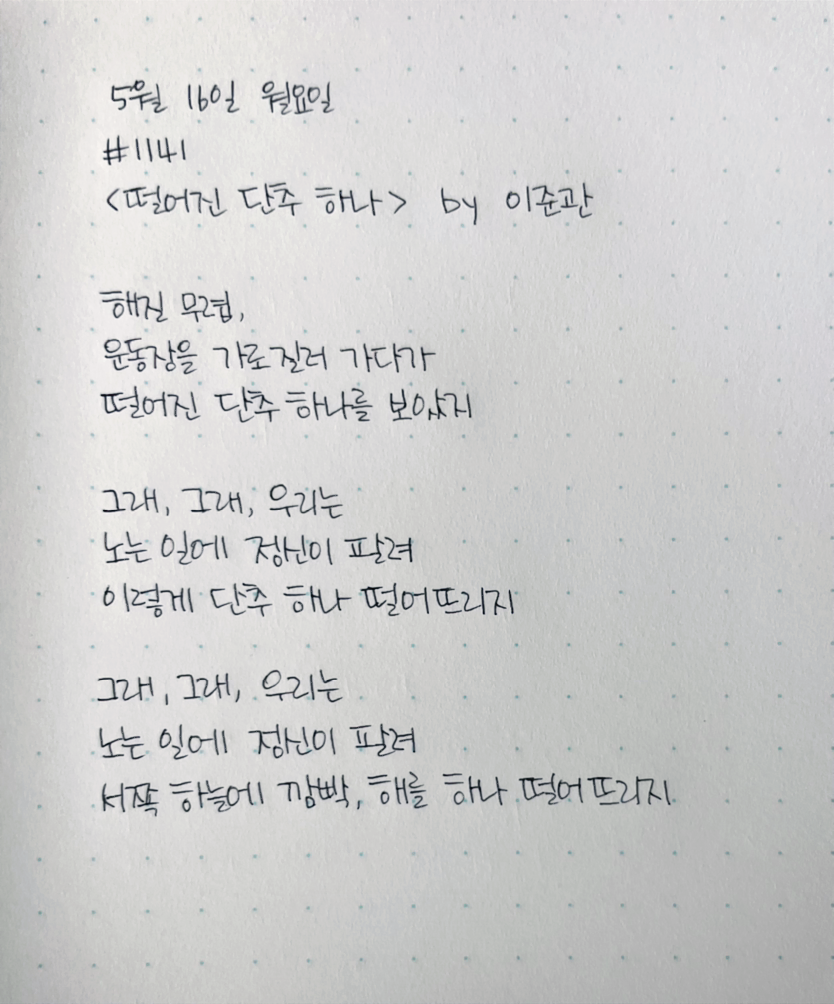 5월 16일 월요일
#1141
<떨어진 단추 하나> by 이준관
해질 무렵,
운동장을 가로질러 가다가
떨어진 단추 하나를 보았지
그래, 그래, 우리는
노는 일에 정신이 팔려
이렇게 단추 하나 떨어뜨리지
그래, 그래, 우리는
노는 일에 정신이 팔려
서쪽 하늘에 깜빡, 해를 하나 떨어뜨리지